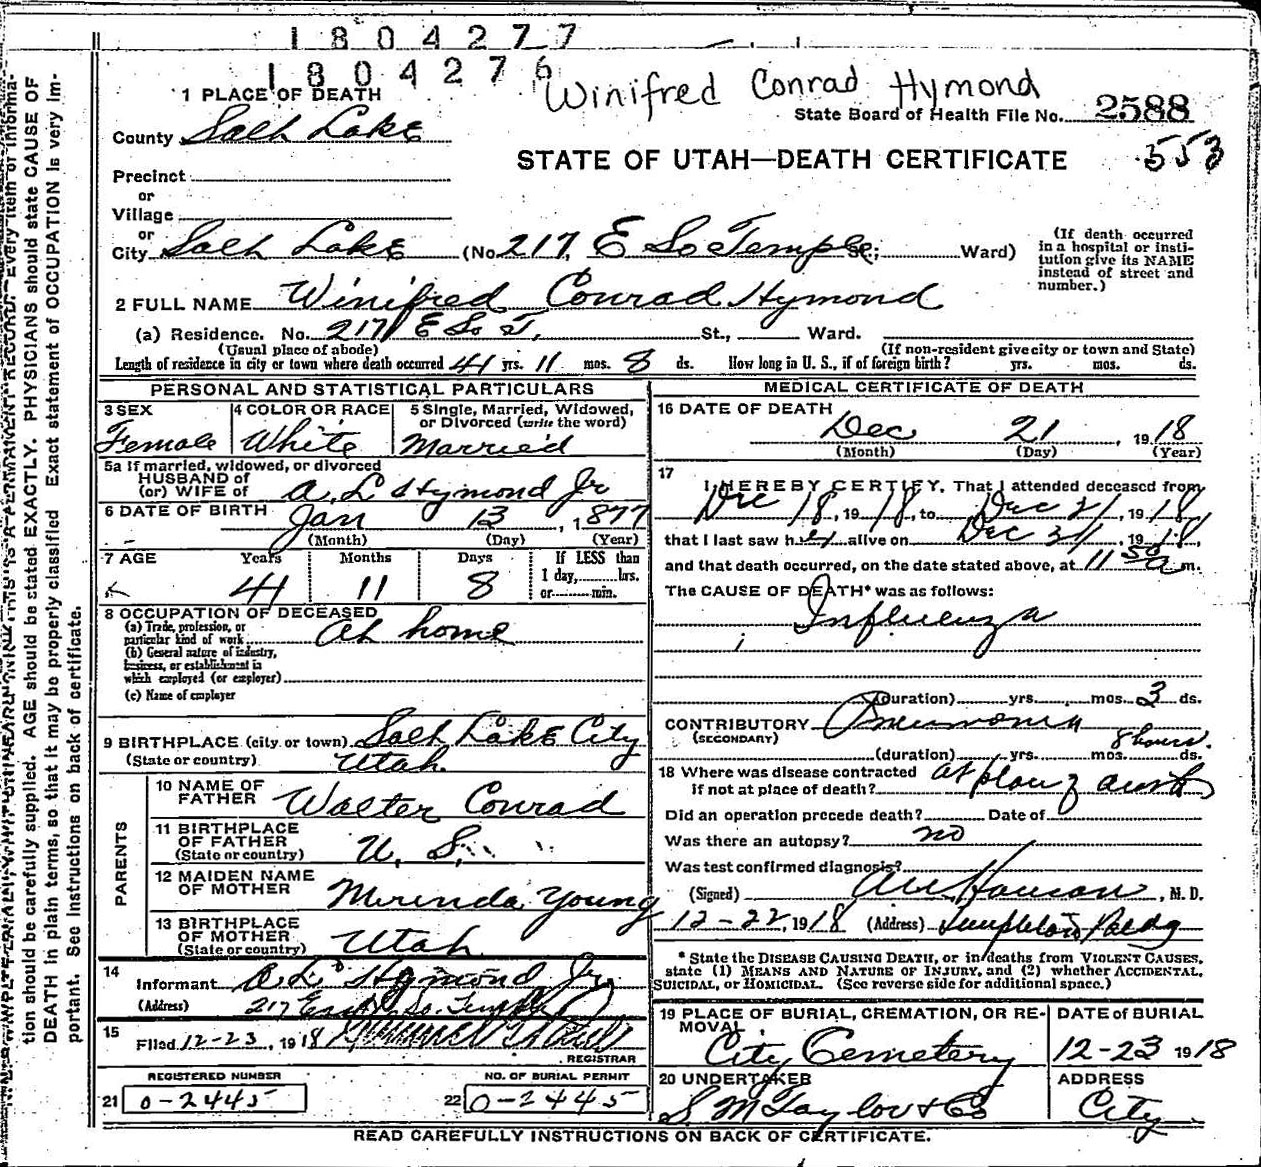 1804277
1804276
Winifred Conrad Hymond
1 PLACE OF DEATH
State Board of Health File No. 2588
County Salt Lake
553
STATE OF UTAH—DEATH CERTIFICATE
Precinct
or
Village
or
City Salt Lake (No. 217, E So Temple St.; Ward)
(If death occurred in a hospital or insti-
tution give its NAME instead of street and number.)
2 FULL NAME Winifred Conrad Hymond
(a) Residence. No. 217 E So T, St., Ward.
(Usual place of abode) (If non-resident give city or town and State)
Length of residence in city or town where death occurred 41 yrs. 11 mos. 8 ds. How long in U. S., if of foreign birth? yrs. mos. ds.
PERSONAL AND STATISTICAL PARTICULARS
3 SEX Female
4 COLOR OR RACE White
5 Single, Married, Widowed, or Divorced (write the word) Married
5a If married, widowed, or divorced
HUSBAND of
(or) WIFE of A. L Hymond Jr
6 DATE OF BIRTH Jan 13, 1877
(Month) (Day) (Year)
7 AGE Years Months Days If LESS than
41 11 8 1 day, hrs.
or min.
8 OCCUPATION OF DECEASED
(a) Trade, profession, or particular kind of work At home
(b) General nature of industry,
business, or establishment in
which employed (or employer)
(c) Name of employer
9 BIRTHPLACE (city or town) Salt Lake City
(State or country) Utah.
PARENTS
10 NAME OF FATHER Walter Conrad
11 BIRTHPLACE OF FATHER (State or country) U. S.
12 MAIDEN NAME OF MOTHER Merinda Young
13 BIRTHPLACE OF MOTHER (State or country) Utah
14
Informant A. L. Hymond Jr.
(Address) 217 East So. Temple
15
Filed 12-23, 1918
REGISTRAR
REGISTERED NUMBER
21 0-2445
NO. OF BURIAL PERMIT
22 0-2445
MEDICAL CERTIFICATE OF DEATH
16 DATE OF DEATH
Dec 21, 1918
(Month) (Day) (Year)
17
I HEREBY CERTIFY, That I attended deceased from
Dec 18, 1918, to Dec 21, 1918
that I last saw her alive on Dec 21, 1918,
and that death occurred, on the date stated above, at 11 50 a m.
The CAUSE OF DEATH* was as follows:
Influenza
(duration) yrs. mos. 3 ds.
CONTRIBUTORY Pneumonia
(SECONDARY) 8 hours.
(duration) yrs. mos. ds.
18 Where was disease contracted
if not at place of death? at place of death
Did an operation precede death? Date of
Was there an autopsy? no
Was test confirmed diagnosis?
(Signed) , M. D.
12-22, 1918 (Address) Templeton Bldg
* State the DISEASE CAUSING DEATH, or in deaths from VIOLENT CAUSES,
state (1) MEANS AND NATURE OF INJURY, and (2) whether ACCIDENTAL,
SUICIDAL, or HOMICIDAL. (See reverse side for additional space.)
19 PLACE OF BURIAL, CREMATION, OR RE-
MOVAL
City Cemetery
DATE of BURIAL
12-23 1918
20 UNDERTAKER
S. M Taylor & Co
ADDRESS
City
READ CAREFULLY INSTRUCTIONS ON BACK OF CERTIFICATE.
tion should be carefully supplied. AGE should be stated EXACTLY. PHYSICIANS should state CAUSE OF
DEATH in plain terms, so that it may be properly classified. Exact statement of OCCUPATION is very im-
portant. See Instructions on back of certificate.